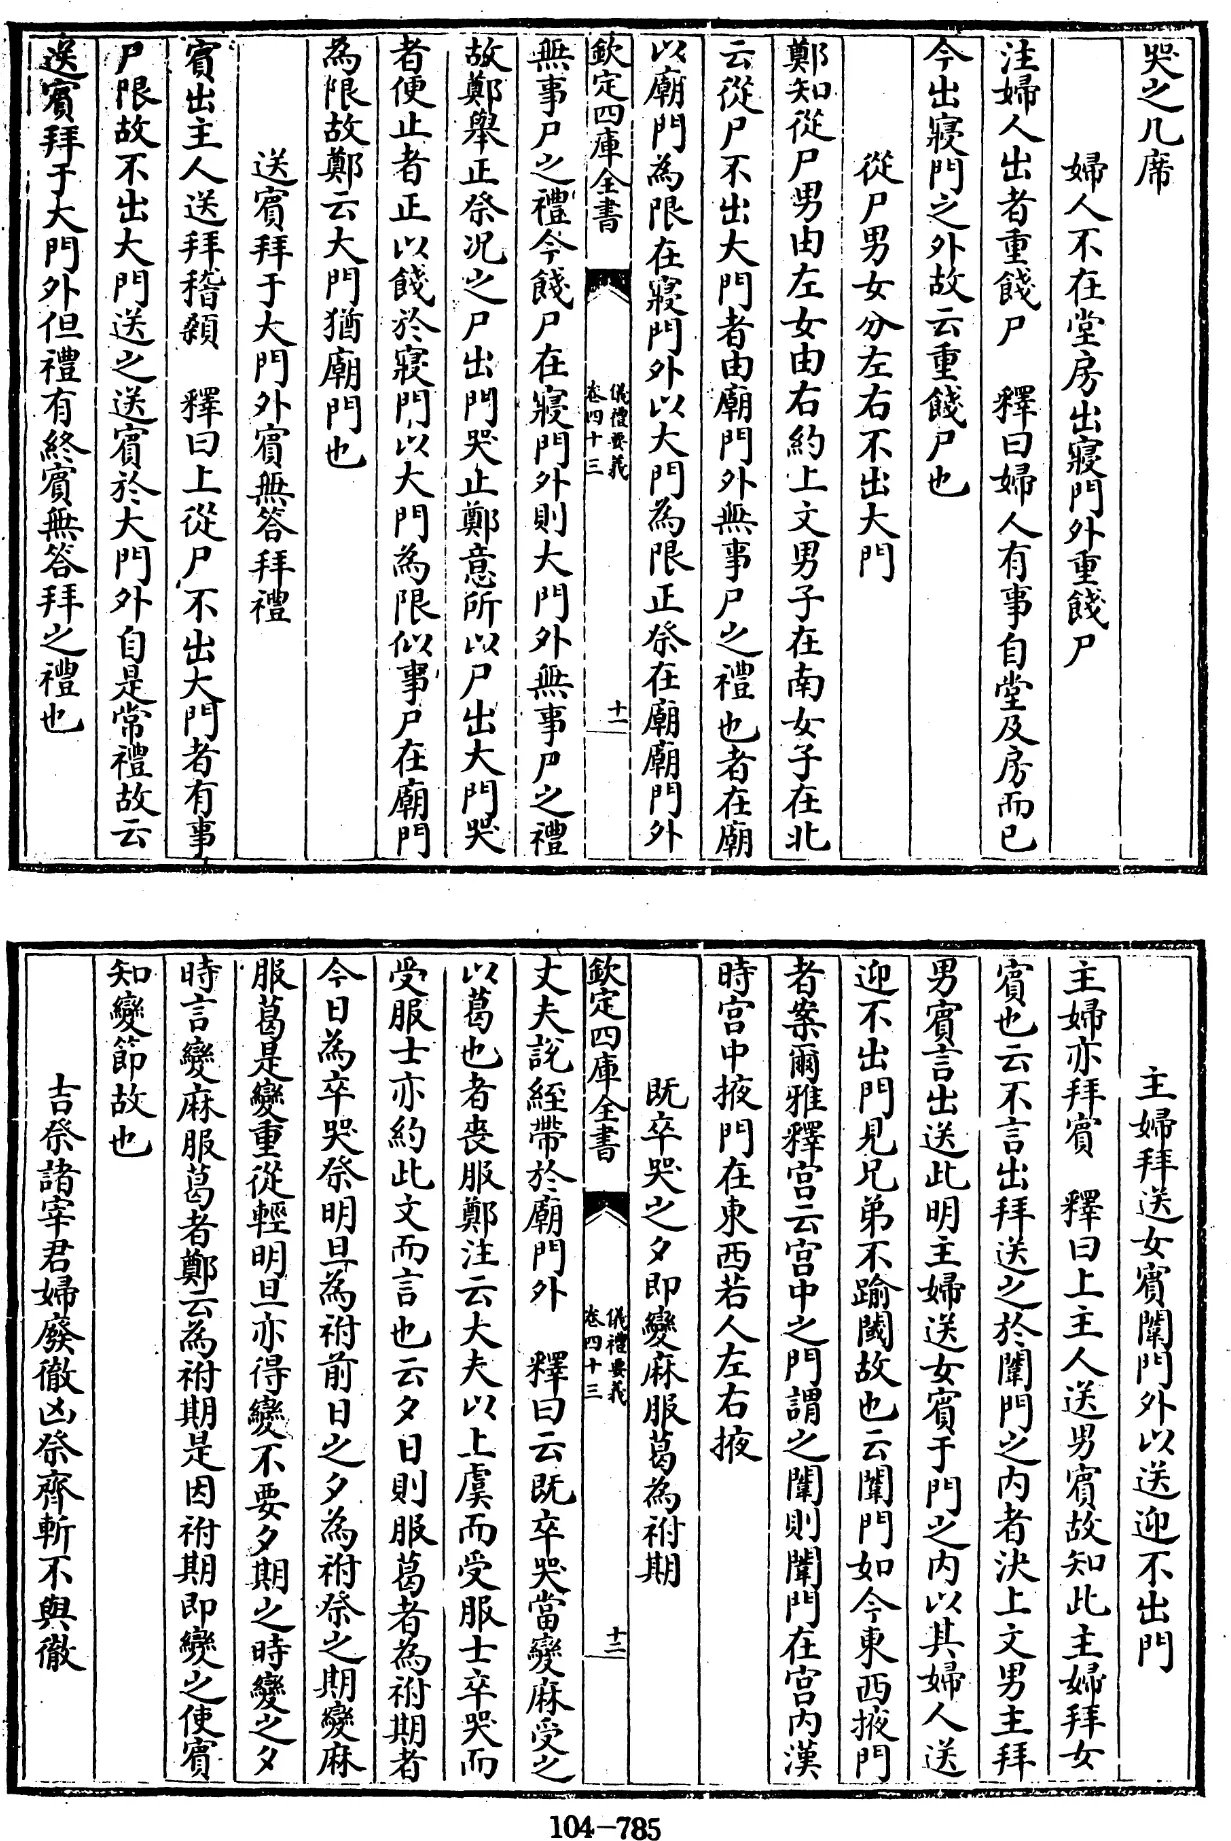 哭之几席
婦人不在堂房出寢門外重餞尸
注婦人出者重餞尸　釋曰婦人有事自堂及房而已
今出寢門之外故云重餞尸也
從尸男女分左右不出大門
鄭知從尸男由左女由右約上文男子在南女子在北
云從尸不出大門者由廟門外無事尸之禮也者在廟
以廟門為限在寢門外以大門為限正祭在廟廟門外
欽定四庫全書
儀禮要義
卷四十三
十一
無事尸之禮今餞尸在寢門外則大門外無事尸之禮
故鄭舉正祭况之尸出門哭止鄭意所以尸出大門哭
者便止者正以餞於寢門以大門為限似事尸在廟門
為限故鄭云大門猶廟門也
送賓拜于大門外賓無答拜禮
賓出主人送拜稽顙　釋曰上從尸不出大門者有事
尸限故不出大門送之送賓於大門外自是常禮故云
送賓拜于大門外但禮有終賓無答拜之禮也
主婦拜送女賓闈門外以送迎不出門
主婦亦拜賓　釋曰上主人送男賓故知此主婦拜女
賓也云不言出拜送之於闈門之内者決上文男主拜
男賓言出送此明主婦送女賓于門之内以其婦人送
迎不出門見兄弟不踰閾故也云闈門如今東西掖門
者案爾雅釋宫云宫中之門謂之闈則闈門在宫内漢
時宫中掖門在東西若人左右掖
既卒哭之夕即變麻服葛為祔期
欽定四庫全書
儀禮要義
卷四十三
十二
丈夫説絰帶於廟門外　釋曰云既卒哭當變麻受之
以葛也者喪服鄭注云大夫以上虞而受服士卒哭而
受服士亦約此文而言也云夕日則服葛者為祔期者
今日為卒哭祭明旦為祔前日之夕為祔祭之期變麻
服葛是變重從輕明旦亦得變不要夕期之時變之夕
時言變麻服葛者鄭云為祔期是因祔期即變之使賓
知變節故也
吉祭諸宰君婦廢徹凶祭齊斬不與徹
104-785